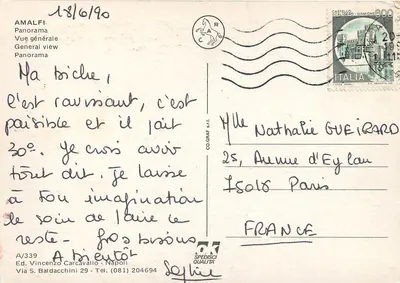 18/6/90
AMALFI
Panorama
Vue générale
General view
Panorama
Ma biche,
C'est ravissant, c'est
paisible et il fait
30°. Je crois avoir
tout dit. Je laisse
à ton imagination
le soin de faire le
reste. Gros bisous
A bientôt
Sophie
A/339
Ed. Vincenzo Carcavallo - Napoli
Via S. Baldacchini 29 - Tel. (081) 204694
CO.GRAF s.r.l.
SPEDISCI
QUALITÀ
ITALIA
Mlle Nathalie GUEIRARD
25, Avenue d'Eylau
75016 Paris
FRANCE